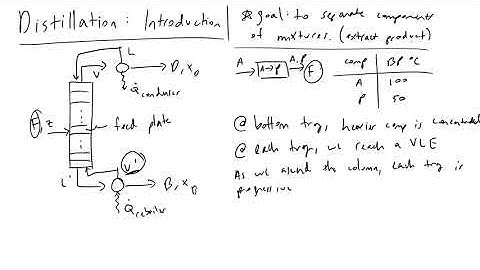 Distillation: Introduction
* goal: to separate components
of mixtures. (extract product)
L
V
D, x_D
Q̇condenser
A
A→P
A, P
F
comp BP °C
A 100
P 50
F, z
feed plate
@ bottom tray, heavier comp is concentrated
@ each tray, we reach a VLE
As we ascend the column, each tray is
progressive
V'
L'
B, x_B
Q̇reboiler